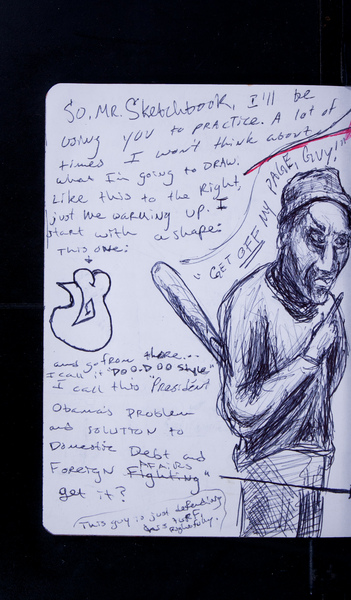 So, Mr. Sketchbook, I'll be
using you to practice. A lot of
times I won't think about
what I'm going to DRAW.
Like this to the Right,
just me warming up. I
start with a shape:
This one:
"GET OFF MY PAGE, GUY!"
and go from there...
I call it "DOO.DOO Style"
I call this "President
Obama's Problem
and SOLUTION to
Domestic Debt and
Foreign Fighting AFFAIRS"
get it?
This guy is just defending
his TURF,
Rightfully.